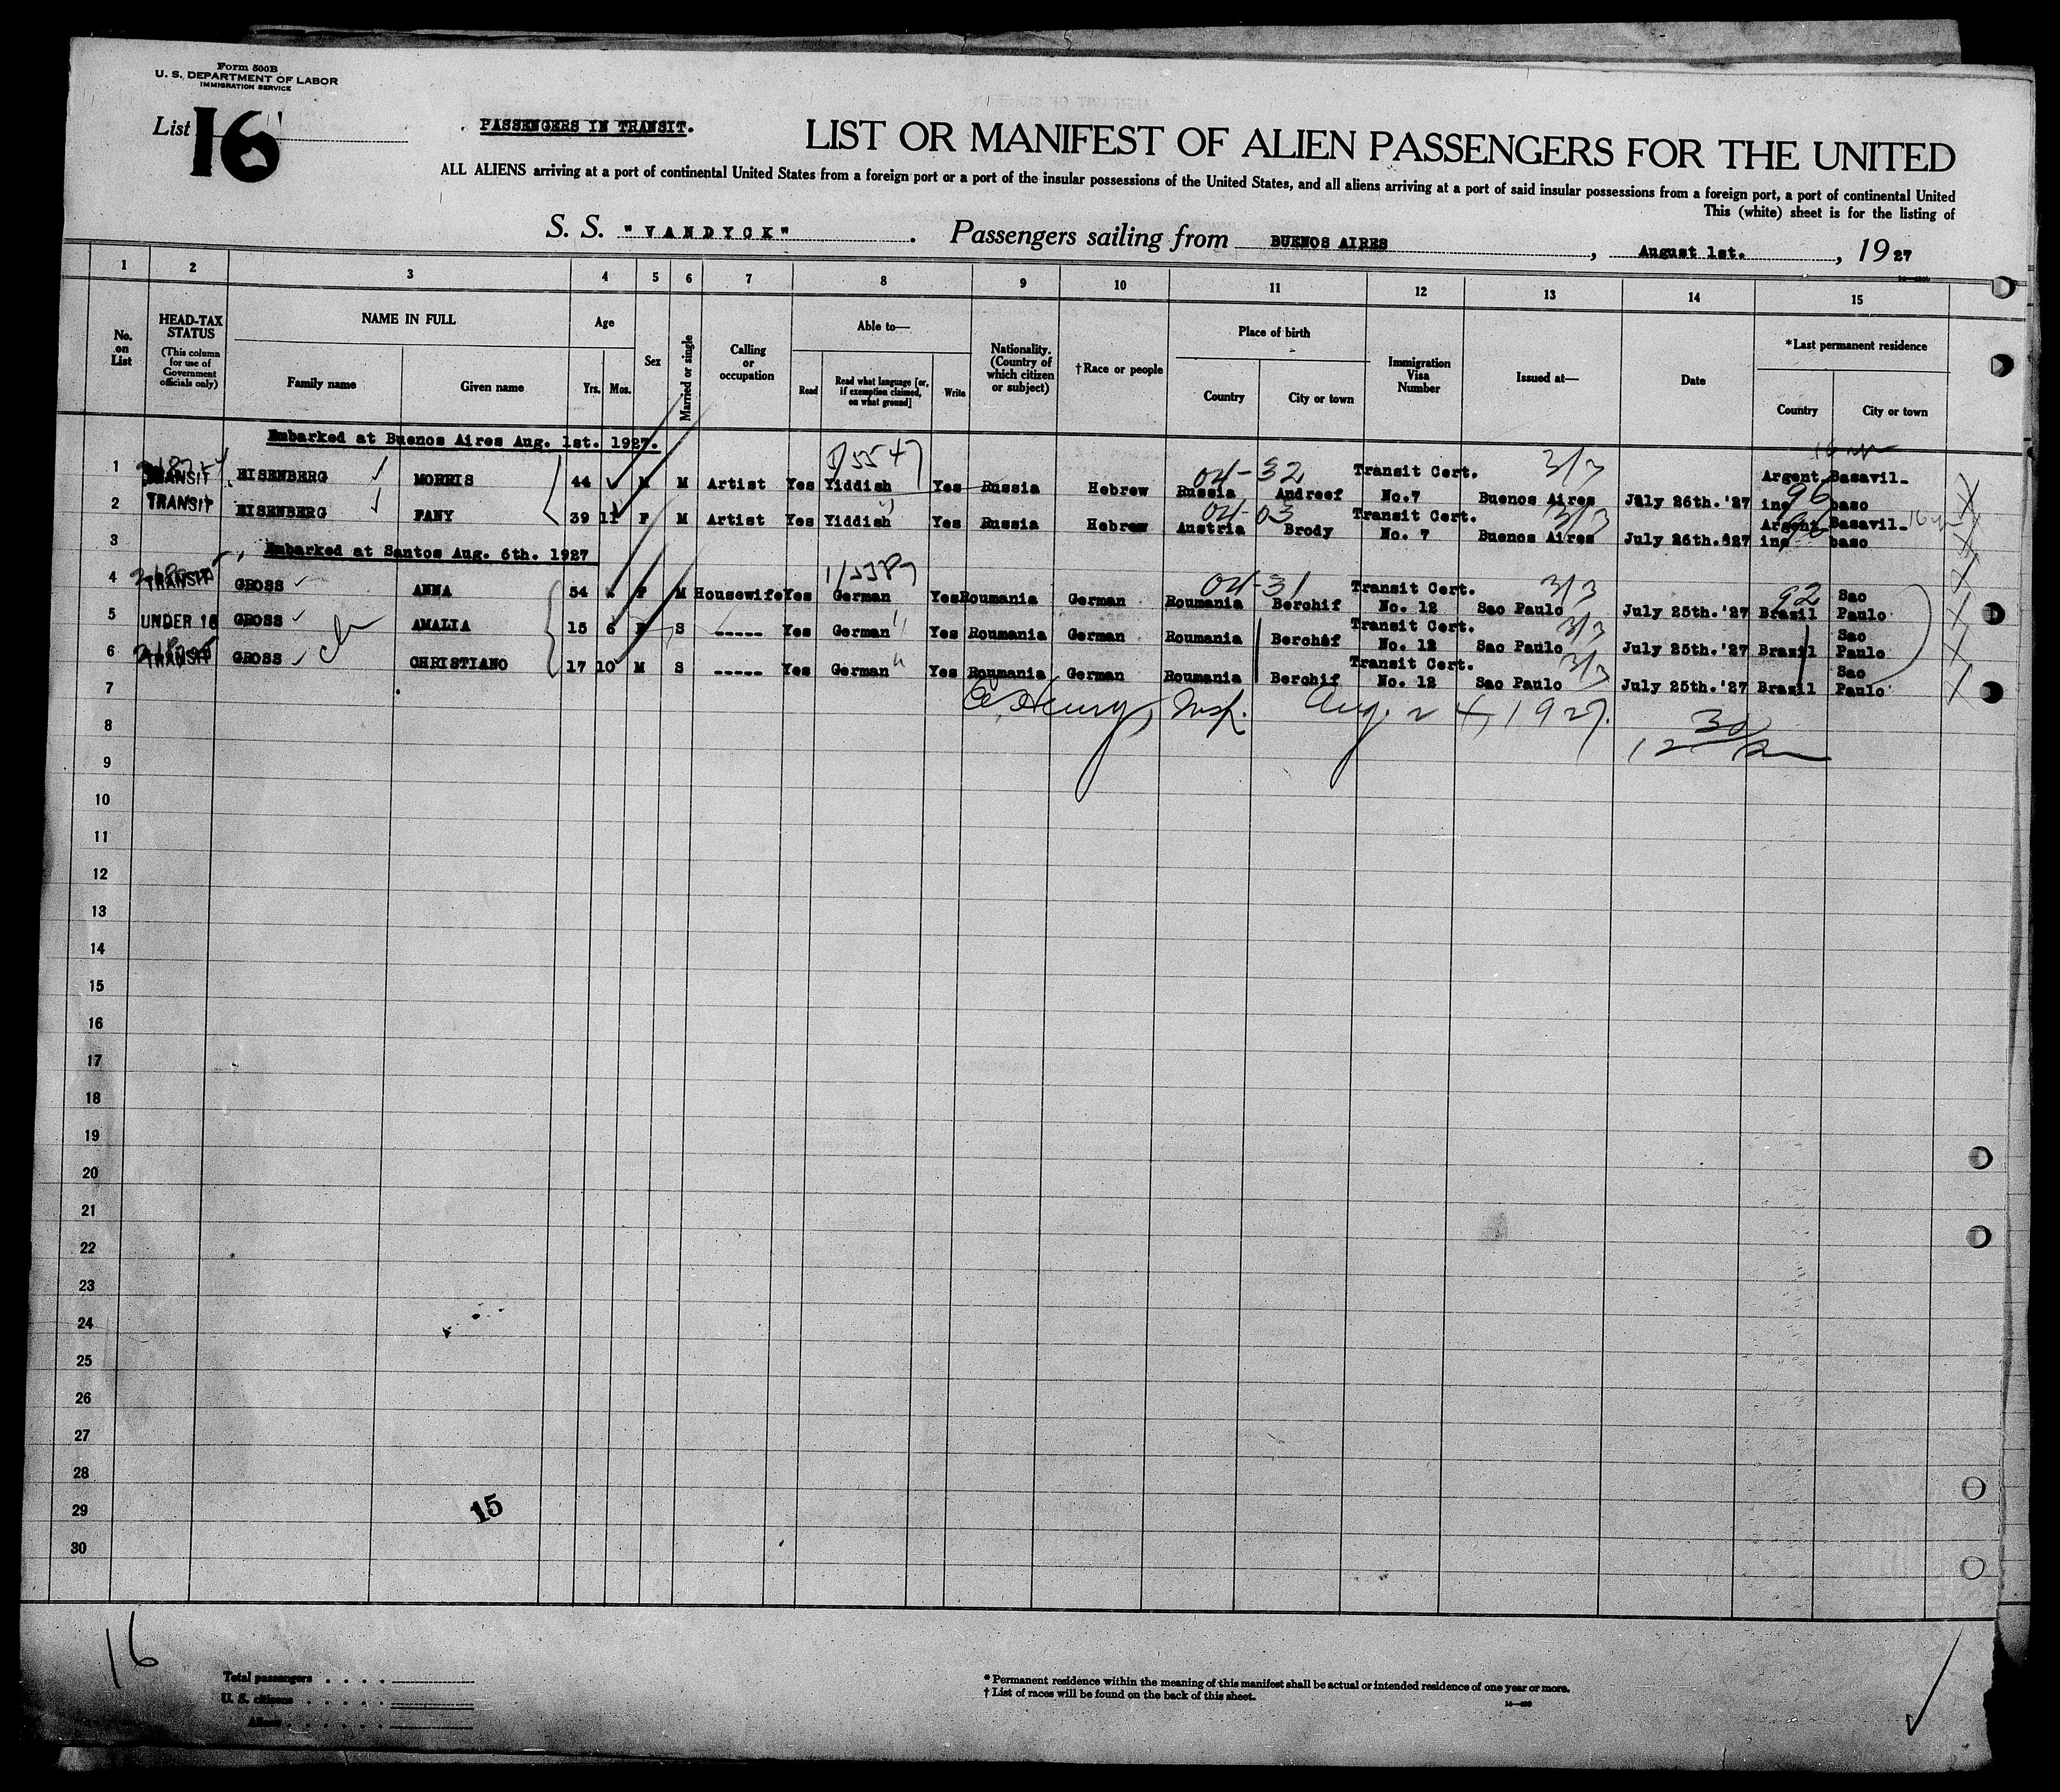 Form 500B
U. S. DEPARTMENT OF LABOR
IMMIGRATION SERVICE
List 16
PASSENGERS IN TRANSIT.
LIST OR MANIFEST OF ALIEN PASSENGERS FOR THE UNITED
ALL ALIENS arriving at a port of continental United States from a foreign port or a port of the insular possessions of the United States, and all aliens arriving at a port of said insular possessions from a foreign port, a port of continental United
This (white) sheet is for the listing of
S. S. "VANDYCK" . Passengers sailing from BUENOS AIRES , August 1st. , 1927
1 2 3 4 5 6 7 8 9 10 11 12 13 14 15
No. on List
HEAD-TAX STATUS
(This column for use of Government officials only)
NAME IN FULL
Family name
Given name
Age
Yrs. Mos.
Sex
Married or single
Calling or occupation
Able to—
Read
Read what language [or, if exemption claimed, on what ground]
Write
Nationality. (Country of which citizen or subject)
†Race or people
Place of birth
Country
City or town
Immigration Visa Number
Issued at—
Date
*Last permanent residence
Country
City or town
Embarked at Buenos Aires Aug. 1st. 1927.
1 TRANSIT EISENBERG MORRIS 44 M M Artist Yes Yiddish Yes Russia Hebrew 04-32 Russia Andreef Transit Cert. No.7 3/3 Buenos Aires July 26th.'27 Argentine 96 Basavilbaso
2 TRANSIT EISENBERG FANY 39 11 F M Artist Yes Yiddish " Yes Russia Hebrew 04-03 Austria Brody Transit Cert. No. 7 3/3 Buenos Aires July 26th.'27 Argentine 96 Basavilbaso
3 Embarked at Santos Aug. 6th. 1927
4 TRANSIT GROSS ANNA 54 F M Housewife Yes German Yes Roumania German 04-31 Roumania Berchif Transit Cert. No. 12 3/3 Sao Paulo July 25th.'27 92 Brazil Sao Paulo
5 UNDER 16 GROSS AMALIA 15 6 F S ----- Yes German " Yes Roumania German Roumania Berchif Transit Cert. No. 12 3/3 Sao Paulo July 25th.'27 Brazil Sao Paulo
6 TRANSIT GROSS CHRISTIANO 17 10 M S ----- Yes German " Yes Roumania German Roumania Berchif Transit Cert. No. 12 3/3 Sao Paulo July 25th.'27 Brazil Sao Paulo
7 Henry, Insp. Aug. 24, 1927.
8 12 30
9
10
11
12
13
14
15
16
17
18
19
20
21
22
23
24
25
26
27
28
29
30
15
16
Total passengers
U. S. citizens
Aliens
* Permanent residence within the meaning of this manifest shall be actual or intended residence of one year or more.
† List of races will be found on the back of this sheet.